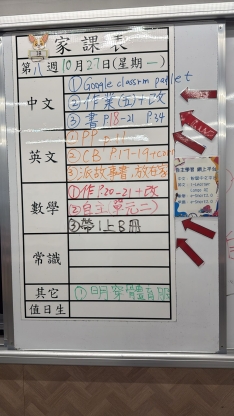 家課表
第八週10月27日(星期一)
中文
①Google classrm padlet
②作業(五)+改
③書P18-21 P34
英文
①PP p.11
②CB P17-19+corr
③派故事書，放在家
數學
①作P.20-21+改
②自主(單元二)
③帶1上B冊
常識
其它
①明穿體育服
值日生